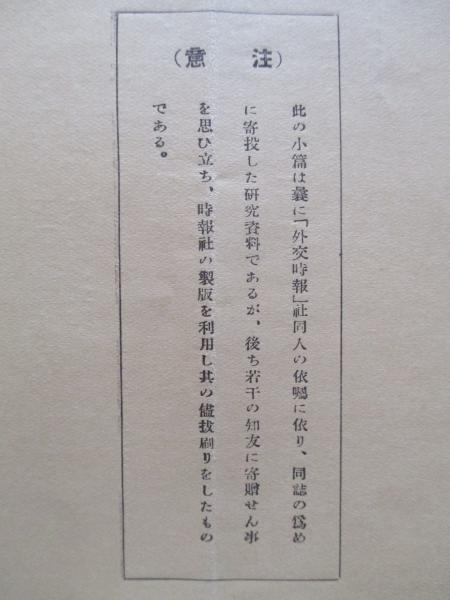 （注意）
此の小篇は曩に「外交時報」社同人の依囑に依り、同誌の爲め
に寄投した研究資料であるが、後ち若干の知友に寄贈せん事
を思ひ立ち、時報社の製版を利用し其の儘拔刷りをしたもの
である。